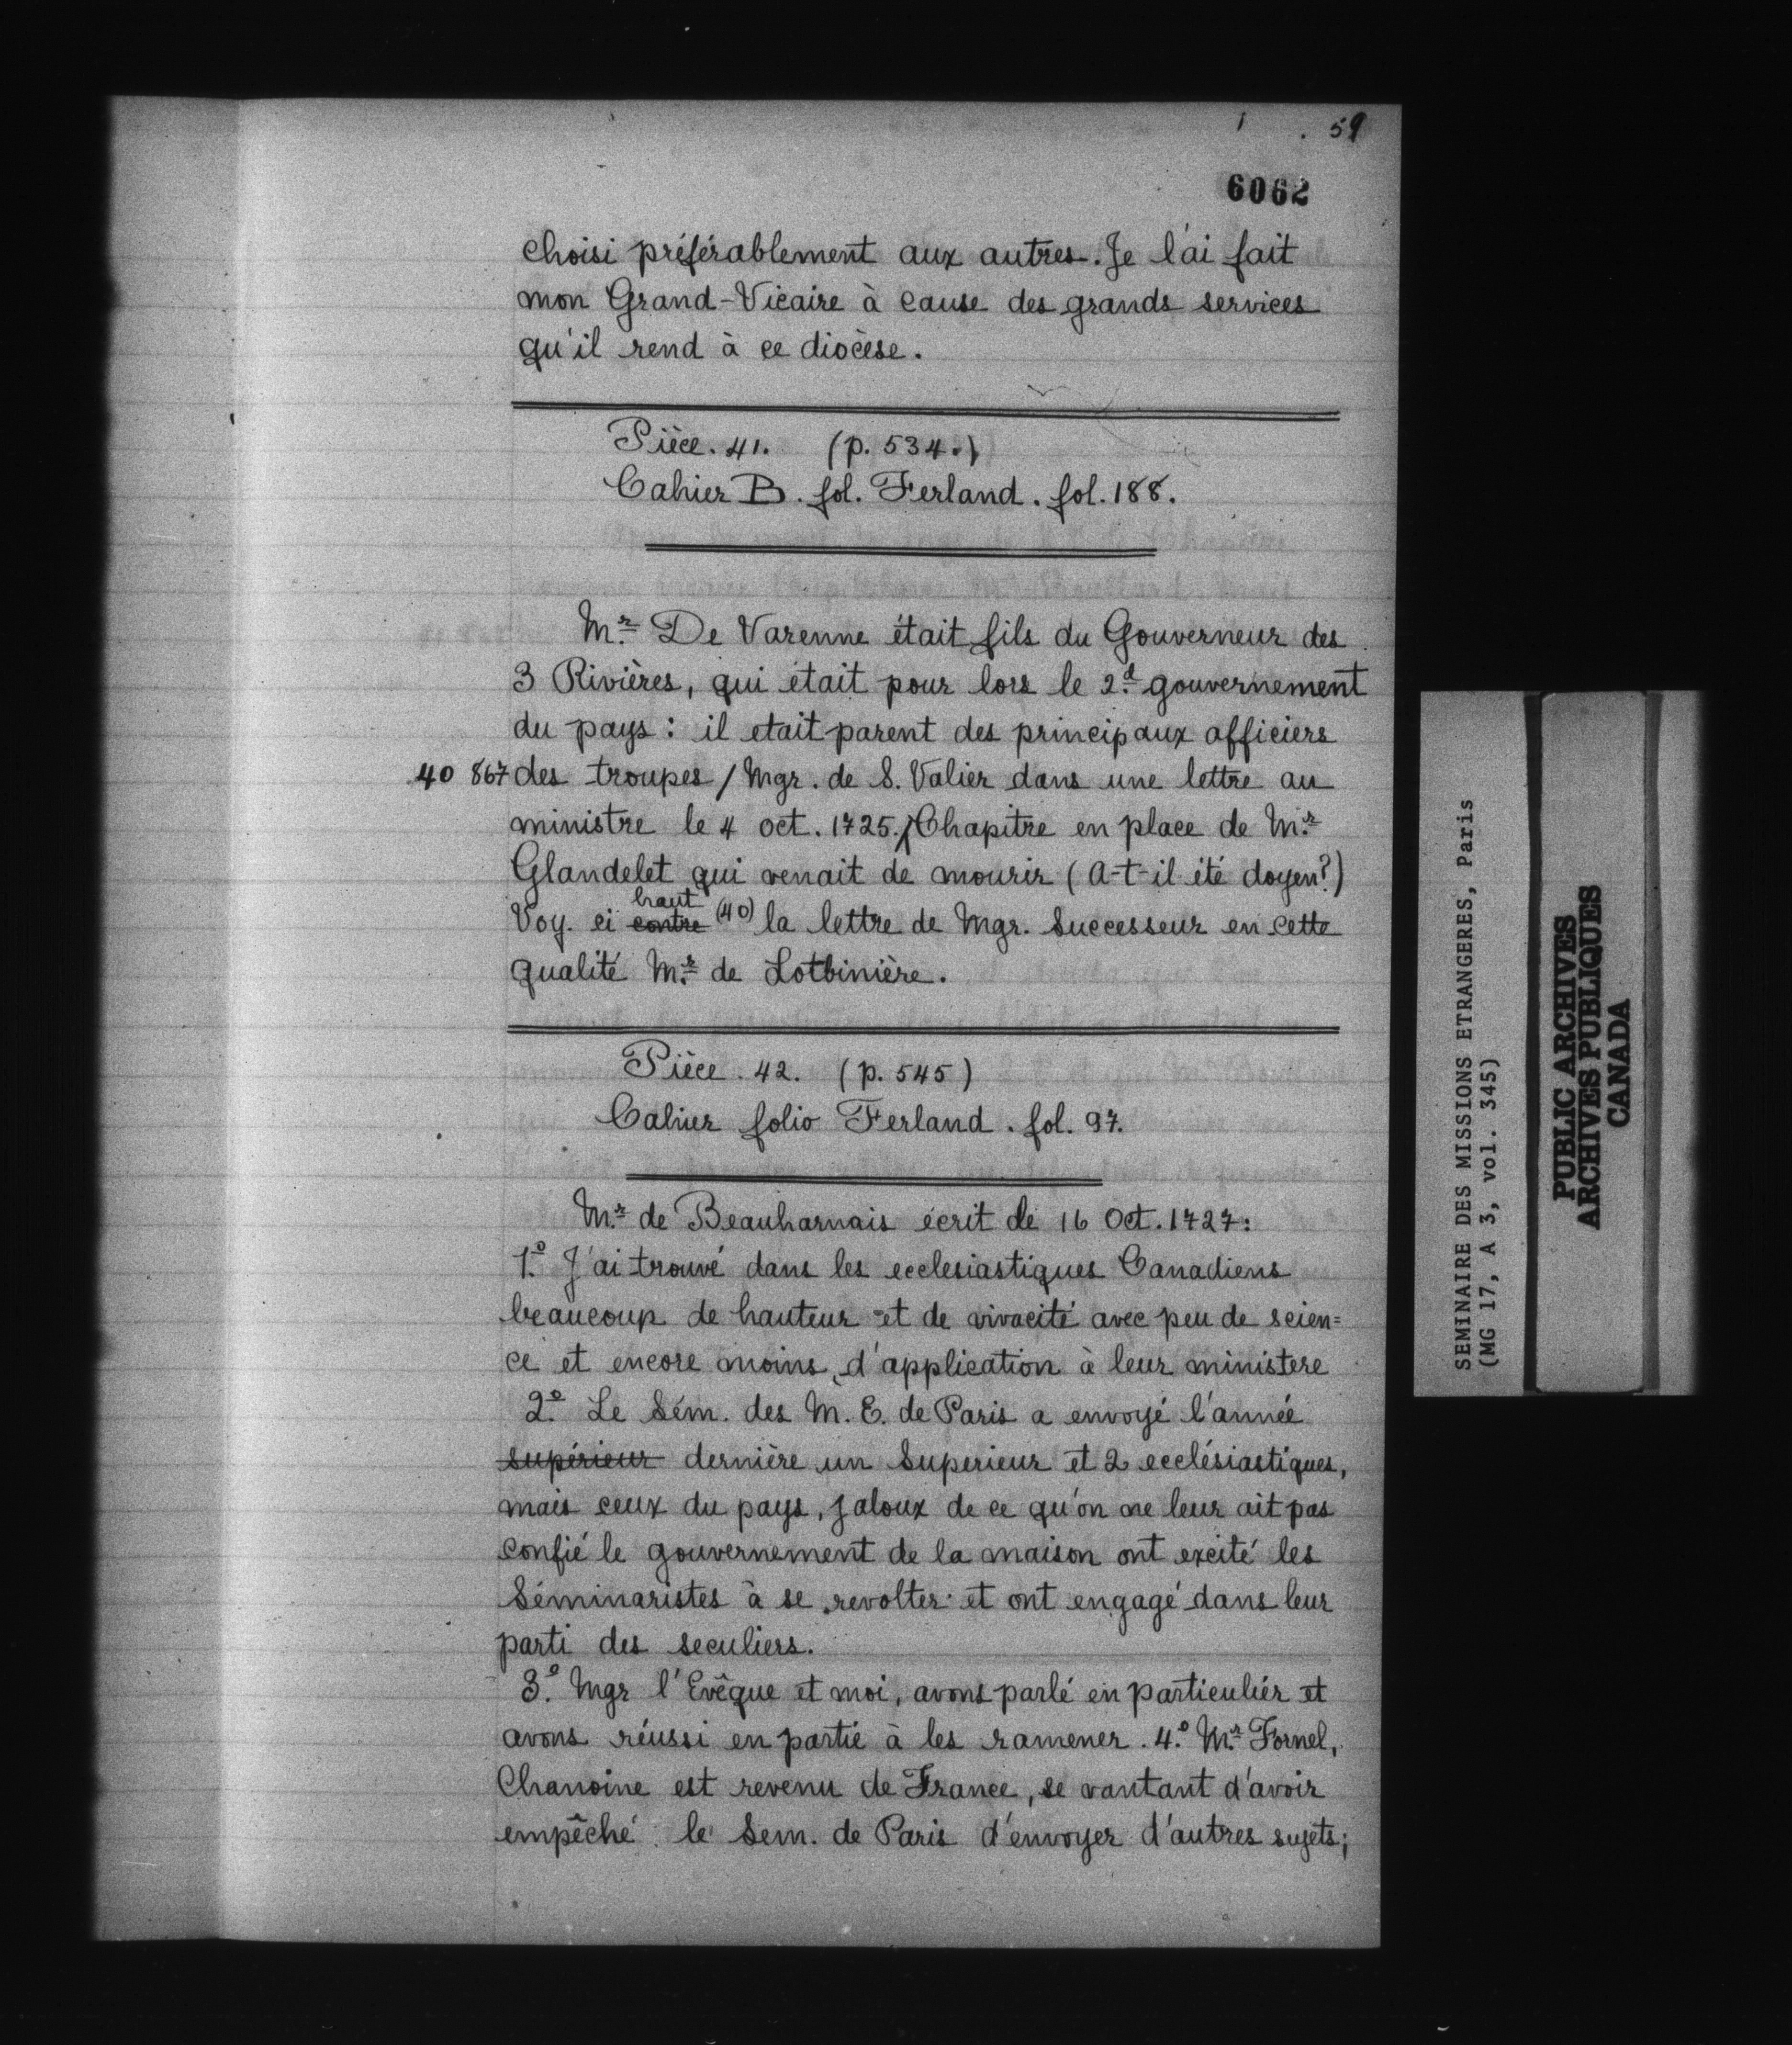 59
6062
choisi préférablement aux autres. Je l'ai fait
mon Grand-Vicaire à cause des grands services
qu'il rend à ce diocèse.
Pièce. 41. (p. 534.)
Cahier B. fol. Ferland. fol. 188.
Mr De Varenne était fils du Gouverneur des
3 Rivières, qui était pour lors le 2d gouvernement
du pays : il etait parent des principaux officiers
40 867 des troupes / Mgr. de S. Valier dans une lettre au
ministre le 4 oct. 1725./ Chapitre en place de Mr
Glandelet qui venait de mourir (A-t-il été doyen?)
Voy. ci contre haut (40) la lettre de Mgr. Successeur en cette
qualité Mr de Lotbinière.
Pièce. 42. (p. 545)
Cahier folio Ferland. fol. 97.
Mr de Beauharnais écrit le 16 Oct. 1727:
1º J'ai trouvé dans les ecclesiastiques Canadiens
beaucoup de hauteur et de vivacité avec peu de scien=
ce et encore moins d'application à leur ministere
2º Le Sém. des M. E. de Paris a envoyé l'année
supérieur dernière un Superieur et 2 ecclésiastiques,
mais ceux du pays, jaloux de ce qu'on ne leur ait pas
confié le gouvernement de la maison ont excité les
Séminaristes à se revolter et ont engagé dans leur
parti des seculiers.
3º Mgr l'Evêque et moi, avons parlé en particulier et
avons réussi en partie à les ramener. 4º Mr Fornel,
Chanoine est revenu de France, se vantant d'avoir
empêché le Sem. de Paris d'envoyer d'autres sujets;
SEMINAIRE DES MISSIONS ETRANGERES, Paris
(MG 17, A 3, vol. 345)
PUBLIC ARCHIVES
ARCHIVES PUBLIQUES
CANADA